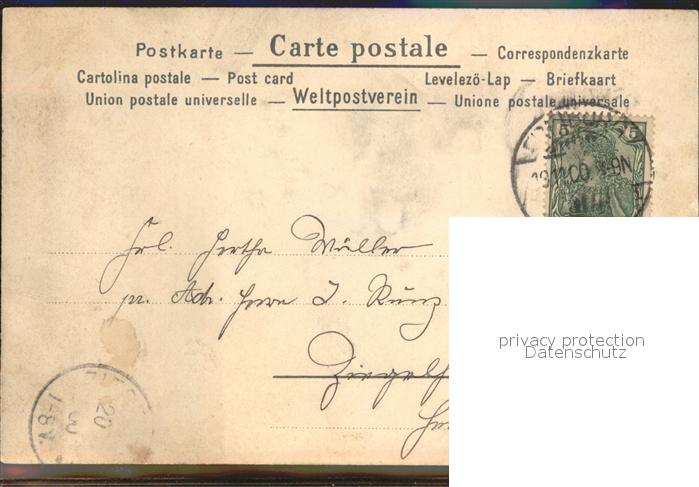 Postkarte — Carte postale — Correspondenzkarte
Cartolina postale — Post card Levelező-Lap — Briefkaart
Union postale universelle — Weltpostverein — Unione postale universale
5
8-9N
Frl. Hertha Müller
pr. Adr. Herrn J. Künz
privacy protection
Datenschutz
20
00
7-8V.